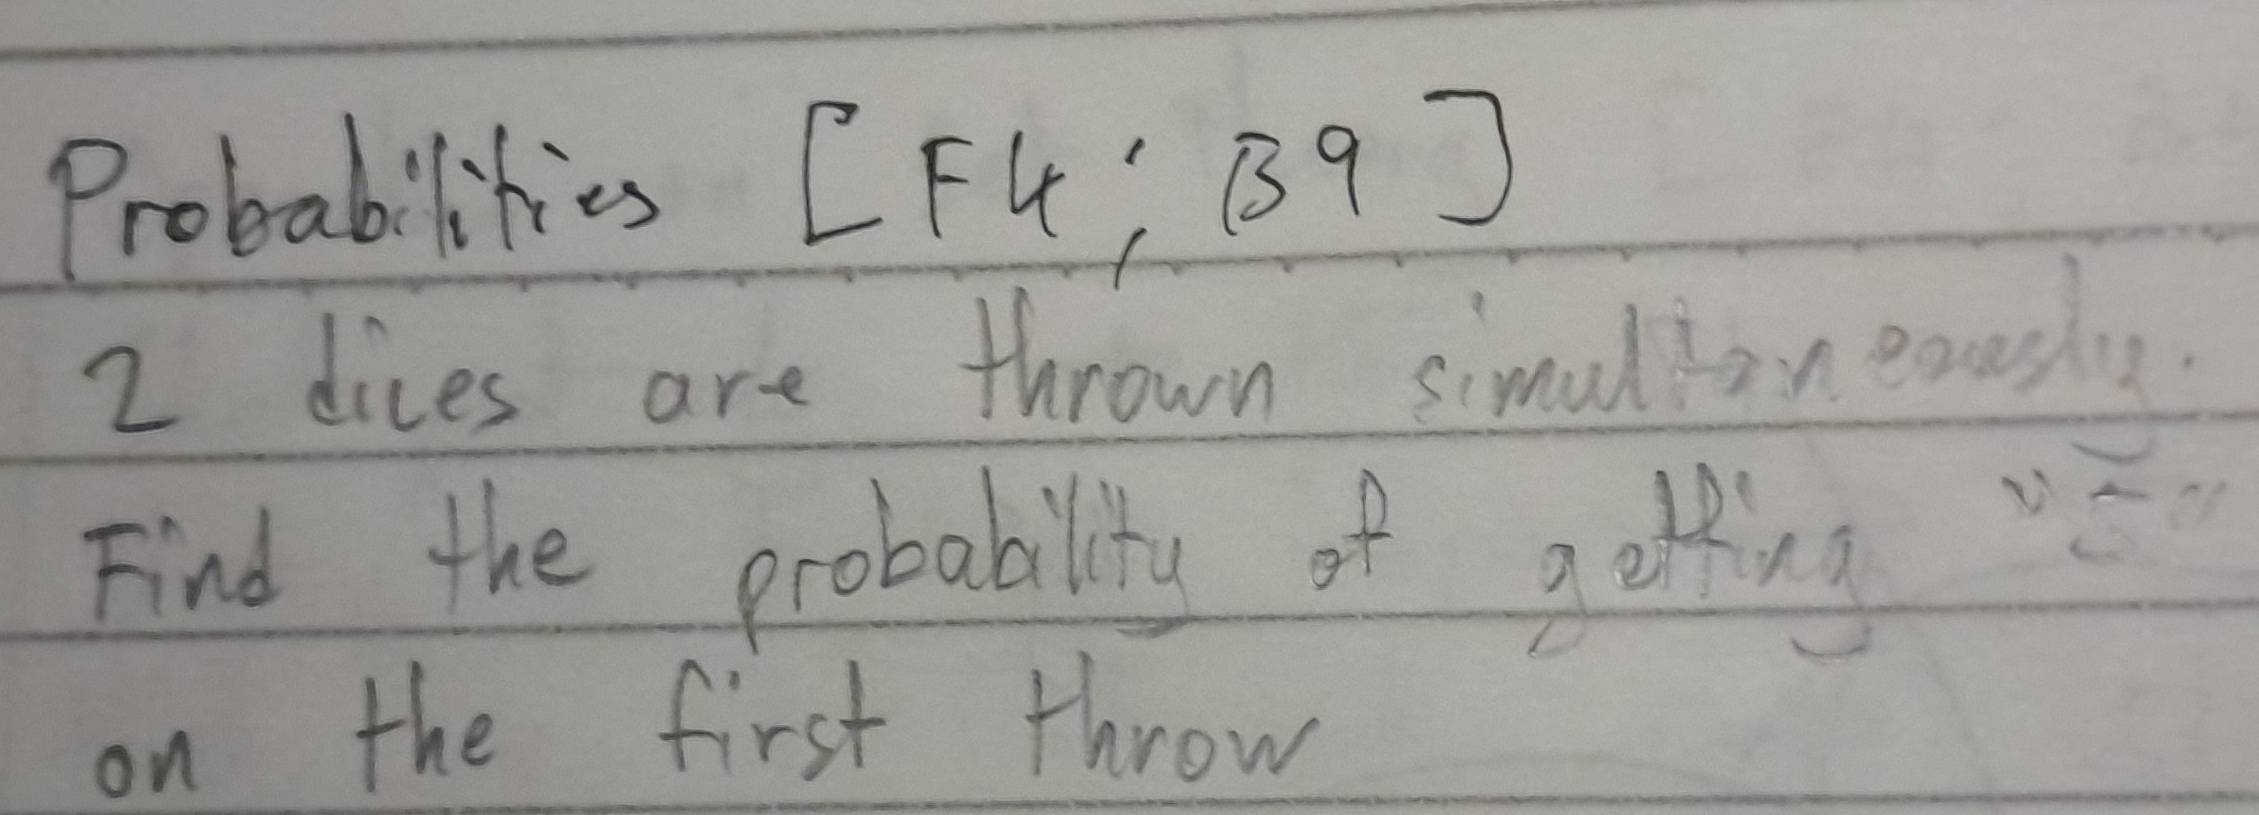 Probabilities [F4; B9]
2 dices are thrown simultaneously.
Find the probability of getting
on the first throw